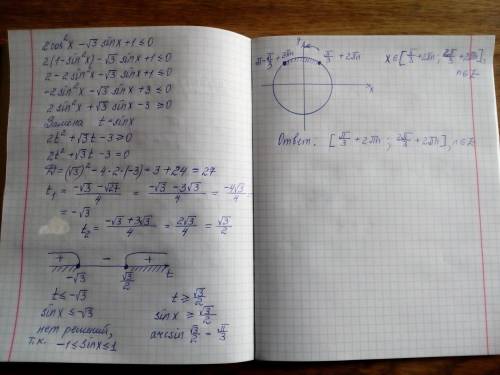 2cos²x - √3 sinx + 1 ≤ 0
2(1 - sin²x) - √3 sinx + 1 ≤ 0
2 - 2sin²x - √3 sinx + 1 ≤ 0
-2sin²x - √3 sinx + 3 ≤ 0
2sin²x + √3 sinx - 3 ≥ 0
Замена t = sinx
2t² + √3t - 3 ≥ 0
2t² + √3t - 3 = 0
D = (√3)² - 4·2·(-3) = 3 + 24 = 27
t₁ = (-√3 - √27)/4 = (-√3 - 3√3)/4 = -4√3/4 =
= -√3
t₂ = (-√3 + 3√3)/4 = 2√3/4 = √3/2
+ - +
-√3 √3/2 t
t ≤ -√3 t ≥ √3/2
sinx ≤ -√3 sinx ≥ √3/2
нет решений, arcsin √3/2 = π/3
т.к. -1 ≤ sinx ≤ 1
y
π - π/3 + 2πn π/3 + 2πn x ∈ [π/3 + 2πn; 2π/3 + 2πn],
n ∈ Z
x
Ответ. [π/3 + 2πn; 2π/3 + 2πn], n ∈ Z